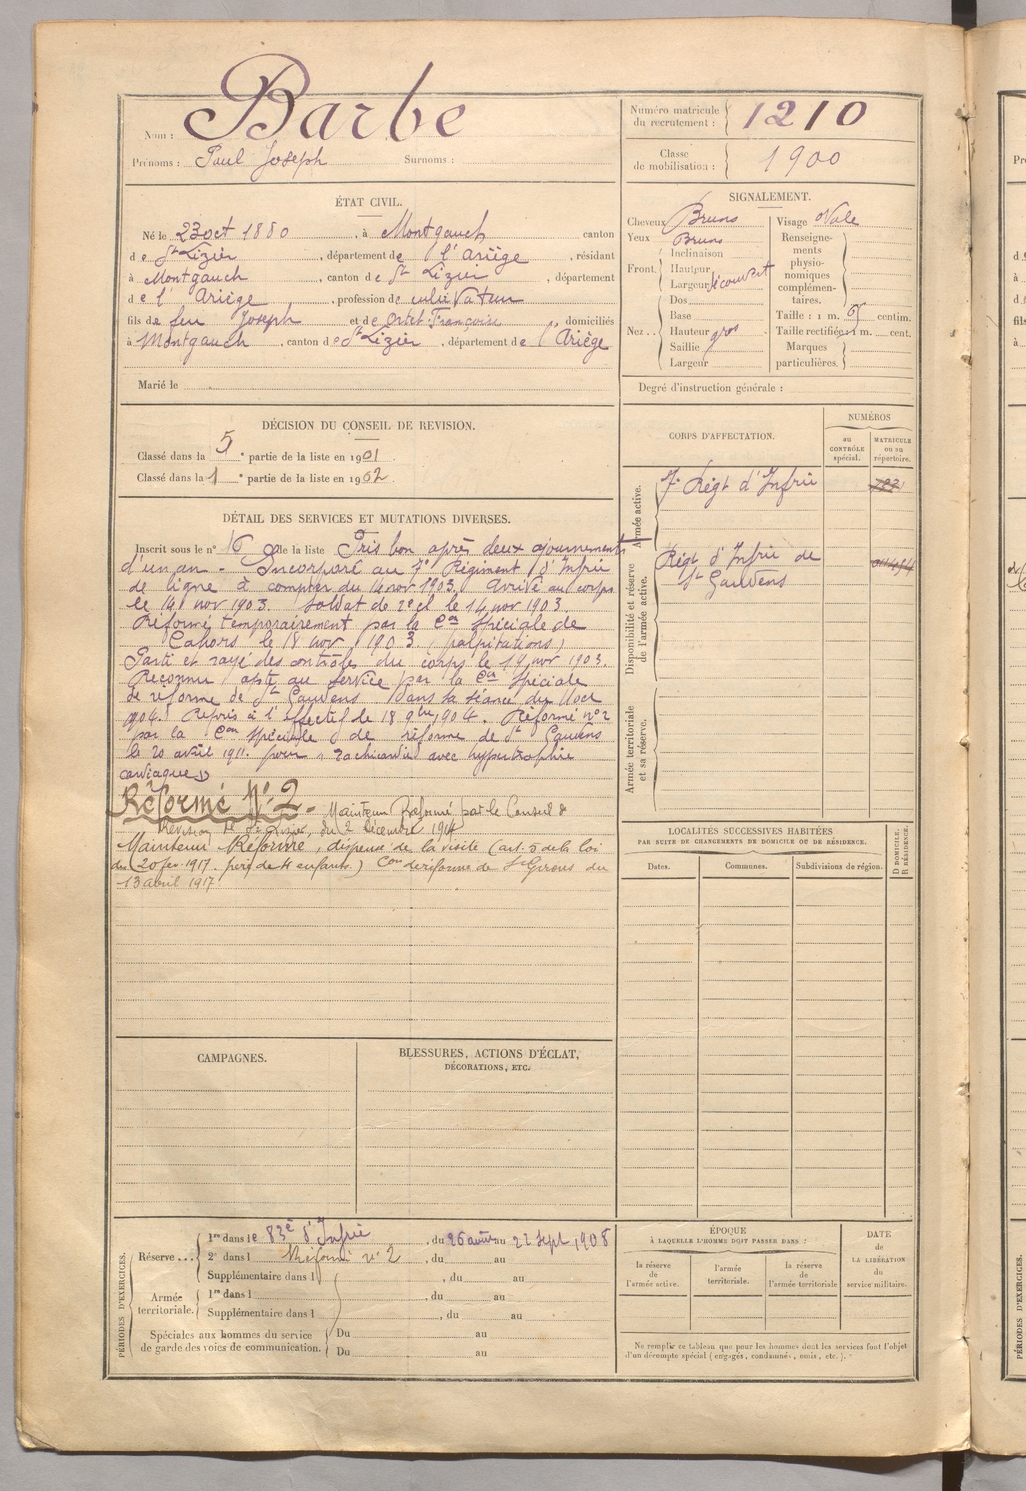 Nom : Barbe
Prénoms : Paul Joseph Surnoms :
Numéro matricule du recrutement : 1210
Classe de mobilisation : 1900
ÉTAT CIVIL.
Né le 23 oct 1880, à Montgauch canton
de St Lizier, département de l'Ariège, résidant
à Montgauch, canton de St Lizier, département
de l'Ariège, profession de cultivateur
fils de feu Joseph et de Ortet Françoise domiciliés
à Montgauch, canton de St Lizier, département de l'Ariège
Marié le
SIGNALEMENT.
Cheveux Bruns
Yeux Bruns
Front. Inclinaison
Hauteur
Largeur découvert
Nez.. Dos
Base
Hauteur gros
Saillie
Largeur
Visage Ovale
Renseignements physionomiques complémentaires.
Taille : 1 m. 65 centim.
Taille rectifiée: 1 m. cent.
Marques particulières.
Degré d'instruction générale :
DÉCISION DU CONSEIL DE REVISION.
Classé dans la 5e partie de la liste en 1901
Classé dans la 1e partie de la liste en 1902.
DÉTAIL DES SERVICES ET MUTATIONS DIVERSES.
Inscrit sous le n° 16 de la liste Pris bon après deux ajournements
d'un an - Incorporé au 7e Régiment d'Infrie
de ligne à compter du 14 nov 1903. Arrivé au corps
le 14 nov 1903. Soldat de 2e cl le 14 nov 1903.
Réformé temporairement par la Con Spéciale de
Cahors le 18 nov 1903 (palpitations)
Parti et rayé des contrôles du corps le 19 nov 1903.
Reconnu apte au service par la Con Spéciale
de réforme de St Gaudens dans sa séance du oct
1904. Repris à l'effectif de 18 9bre 1904. Réformé n°2
par la Con Spéciale de réforme de St Gaudens
le 20 avril 1911. pour tachicardie avec hypertrophie
cardiaque
Réformé N° 2 - Maintenu Réformé par le Conseil de
Révision de St Lizier, du 2 décembre 1914
Maintenu Réformé, dispensé de la visite (art. 5 de la loi
du 20 fev. 1917. père de 4 enfants.) Con de réforme de St Girons du
13 avril 1917.
CORPS D'AFFECTATION.
NUMÉROS
au CONTRÔLE spécial.
MATRICULE ou au répertoire.
Armée active.
7e Régt d'Infrie
Disponibilité et réserve de l'armée active.
Régt d'Infrie de
St Gaudens
Armée territoriale et sa réserve.
LOCALITÉS SUCCESSIVES HABITÉES
PAR SUITE DE CHANGEMENTS DE DOMICILE OU DE RÉSIDENCE.
Dates. Communes. Subdivisions de région. D DOMICILE. R RÉSIDENCE.
CAMPAGNES.
BLESSURES, ACTIONS D'ÉCLAT,
DÉCORATIONS, ETC.
PÉRIODES D'EXERCICES.
Réserve... 1re dans le 83e d'Infrie, du 26 août au 22 Sept 1908
2e dans l Réformé n° 2, du au
Supplémentaire dans l, du au
Armée territoriale. 1re dans l, du au
Supplémentaire dans l, du au
Spéciales aux hommes du service de garde des voies de communication. Du au
Du au
ÉPOQUE
À LAQUELLE L'HOMME DOIT PASSER DANS :
la réserve de l'armée active.
l'armée territoriale.
la réserve de l'armée territoriale
DATE de LA LIBÉRATION du service militaire.
Ne remplir ce tableau que pour les hommes dont les services font l'objet
d'un décompte spécial (engagés, condamnés, omis, etc.).